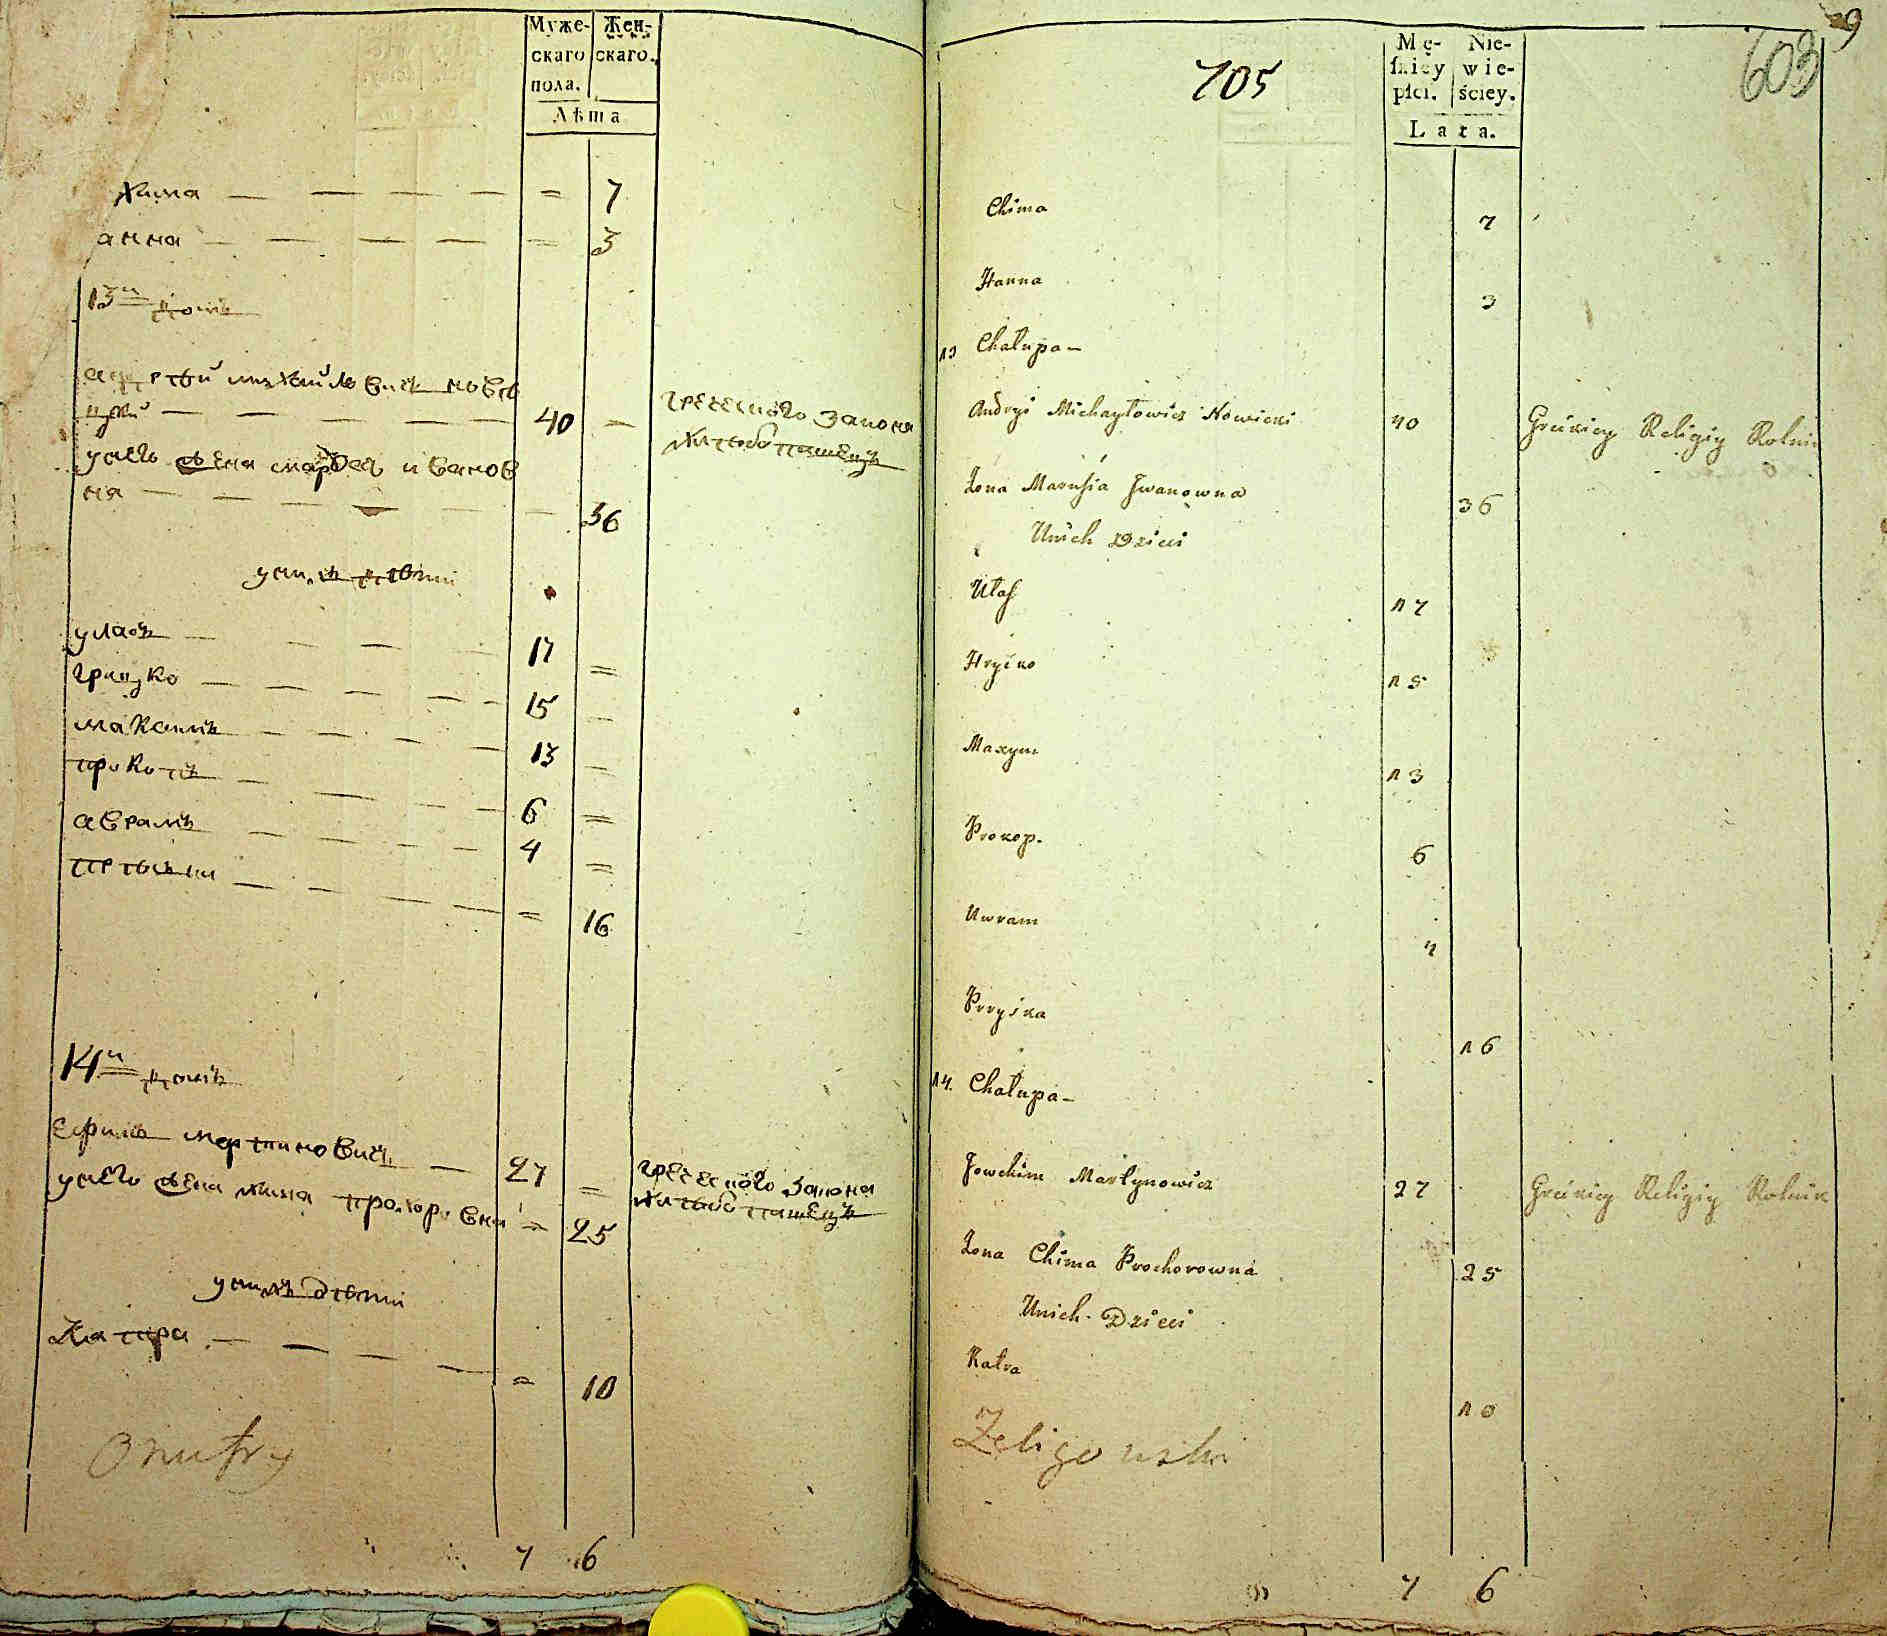 Муже- Жен-
скаго скаго.
пола.
Лѣта
хима — — — — = 7
анна — — — — = 3
13й домъ
андрѣй михайловичъ новѣ
цкий — — — — 40 —
греческого закона
хлѣбопашецъ
унего жена маруся иванов
на — — — — — 36
унихъ дѣти
уласъ — — — — 17 =
грицко — — — — — 15 —
максимъ — — — — 13 —
прокопъ — — — — 6 =
аврамъ — — — — 4 =
— — — — = 16
14й домъ
ефимъ мартиновичъ — 27 =
греческого закона
хлѣбопашецъ
унего жена хима прохоровна = 25
унихъ дѣти
Катра — — — — = 10
Onufry
7 6
9
603
705
Mę- Nie-
skiey wie-
płci. ściey.
Lata.
Chima 7
Hanna 3
13 Chałupa –
Andryi Michayłowicz Nowicki 40 Greckiey Religiy Rolnik
Żona Marusia Jwanowna 36
Unich Dzieci
Ułas 17
Hryćko 15
Maxym 13
Prokop. 6
Awram 4
Pryśka 16
14. Chałupa –
Jowchim Martynowicz 27 Greckiey Religiy Rolnik
Żona Chima Prochorowna 25
Unich Dzieci
Katra 10
Zeligowski
7 6